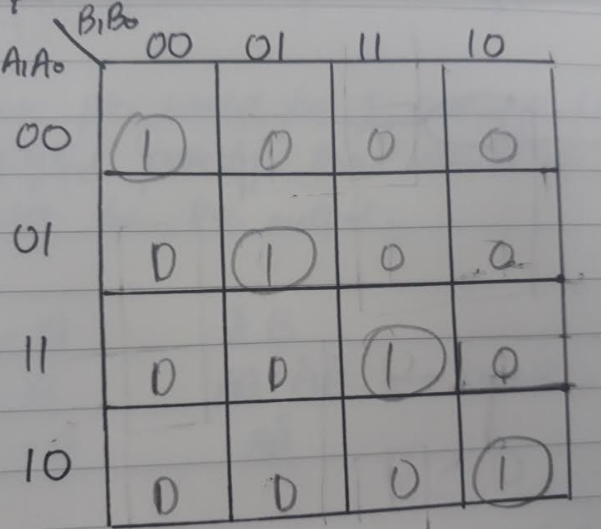 B₁B₀
00 01 11 10
A₁A₀
00 1 0 0 0
01 0 1 0 0
11 0 0 1 0
10 0 0 0 1